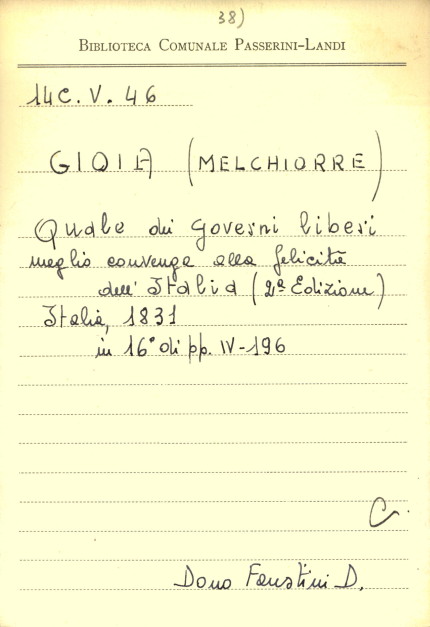 38)
BIBLIOTECA COMUNALE PASSERINI-LANDI
14C. V. 46
GIOIA (MELCHIORRE)
Quale dei Governi liberi
meglio convenga alla felicità
dell' Italia (2ª Edizione)
Italia, 1831
in 16° di pp. IV-196
C.
Dono Faustini D.